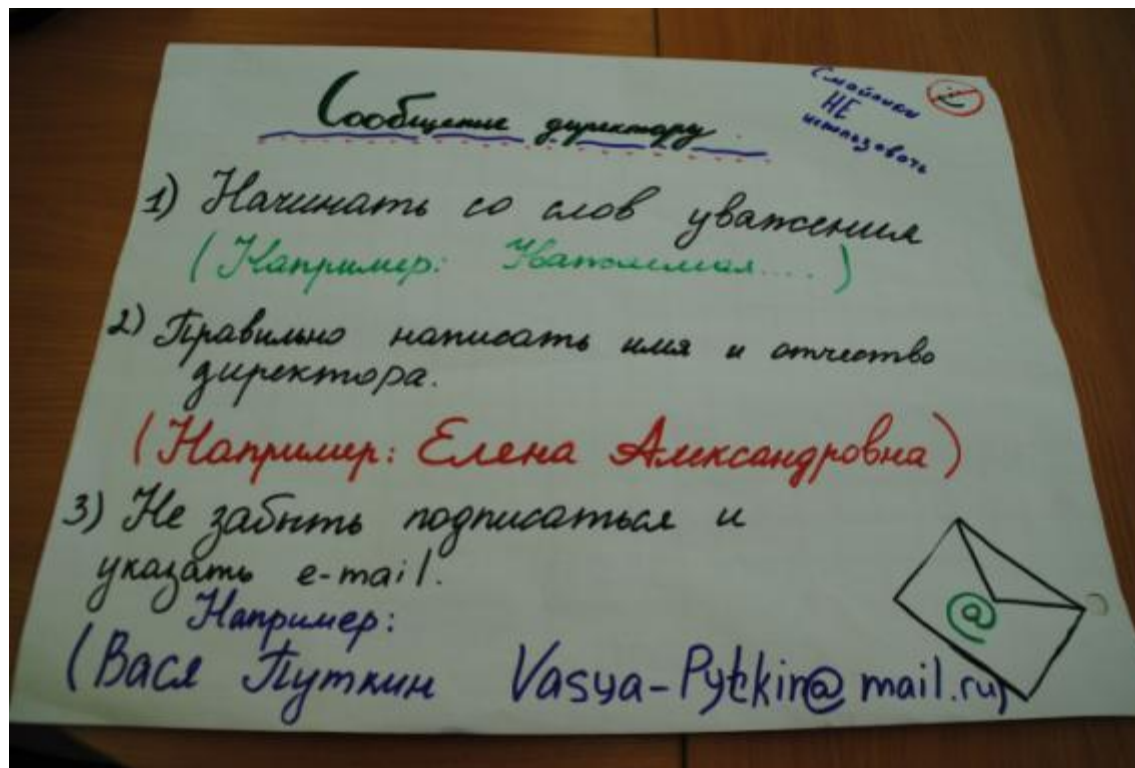 Сообщение директору
Смайлики
НЕ
использовать
1) Начинать со слов уважения
(Например: Уважаемая....)
2) Правильно написать имя и отчество
директора.
(Например: Елена Александровна)
3) Не забыть подписаться и
указать e-mail.
Например:
(Вася Путкин Vasya-Pytkin@mail.ru)
@